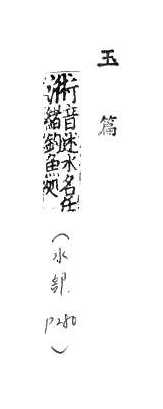 玉篇
音述水名在
緒釣魚処
(水部. P280)